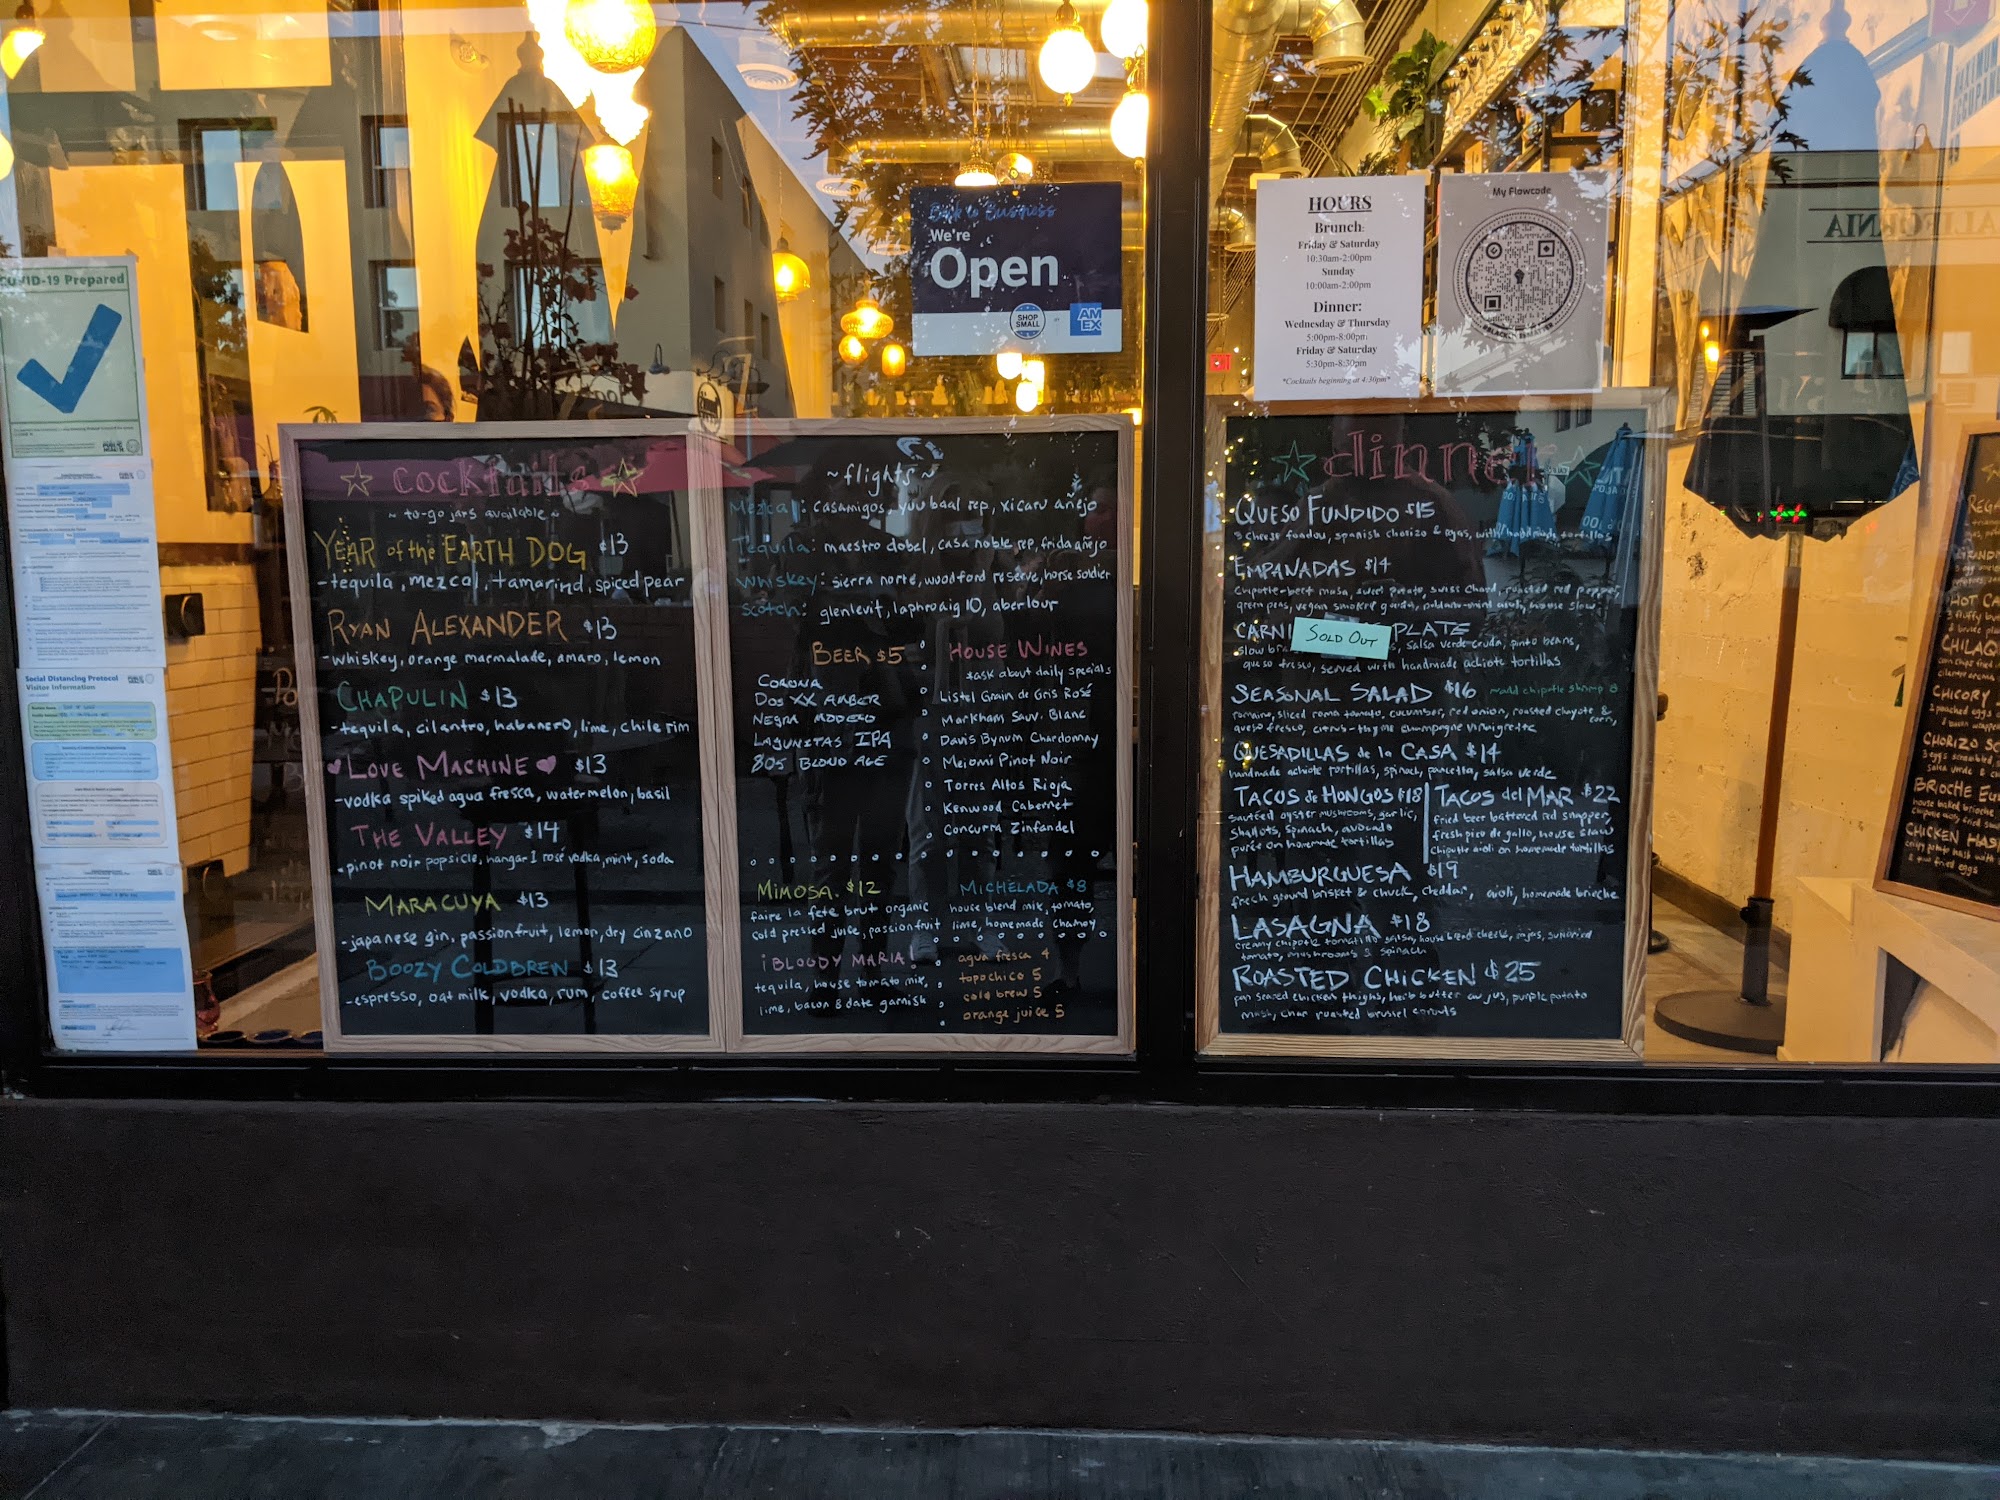 COVID-19 Prepared
Social Distancing Protocol
Visitor Information
Back to Business
We're
Open
SHOP
SMALL
AM
EX
HOURS
Brunch:
Friday & Saturday
10:30am-2:00pm
Sunday
10:00am-2:00pm
Dinner:
Wednesday & Thursday
5:00pm-8:00pm
Friday & Saturday
5:30pm-8:30pm
*Cocktails beginning at 4:30pm*
My Flowcode
cocktails
~ to-go jars available ~
YEAR of the EARTH DOG $13
- tequila, mezcal, tamarind, spiced pear
RYAN ALEXANDER $13
- whiskey, orange marmalade, amaro, lemon
CHAPULIN $13
- tequila, cilantro, habanero, lime, chile rim
LOVE MACHINE $13
- vodka spiked agua fresca, watermelon, basil
THE VALLEY $14
- pinot noir popsicle, hangar 1 rosé vodka, mint, soda
MARACUYA $13
- japanese gin, passionfruit, lemon, dry cinzano
BOOZY COLDBREN $13
- espresso, oat milk, vodka, rum, coffee syrup
~ flights ~
Mezcal: casamigos, yuu baal rep, xicaru añejo
Tequila: maestro dobel, casa noble rep, frida añejo
Whiskey: sierra norte, woodford reserve, horse soldier
Scotch: glenlevit, laphroaig 10, aberlour
BEER $5
CORONA
DOS XX AMBER
NEGRA MODELO
LAGUNITAS IPA
805 BLOUD ALE
HOUSE WINES
*ask about daily specials
Listel Grain de Gris Rosé
Markham Sauv. Blanc
Davis Bynum Chardonnay
Meiomi Pinot Noir
Torres Altos Rioja
Kenwood Cabernet
Concurra Zinfandel
MIMOSA $12
faire la fete brut organic
cold pressed juice, passionfruit
MICHELADA $8
house blend mix, tomato,
lime, homemade chamoy
¡BLOODY MARIA!
tequila, house tomato mix,
lime, bacon & date garnish
agua fresca 4
topochico 5
cold brew 5
orange juice 5
dinner
QUESO FUNDIDO $15
3 cheese foudou, spanish chorizo & rajas, with handmade tortillas
EMPANADAS $14
chipotle-beet masa, sweet potato, swiss chard, roasted red pepper,
green peas, vegan smoked gouda, poblano-mint aioli, house slaw
CARNI PLATE
SOLD OUT
slow bra s, salsa verde cruda, pinto beans,
queso fresco, served with handmade achiote tortillas
SEASONAL SALAD $16 *add chipotle shrimp 8
romaine, sliced roma tomato, cucumber, red onion, roasted chayote & corn,
queso fresco, citrus-thyme champagne vinaigrette
QUESADILLAS de la CASA $14
handmade achiote tortillas, spinach, pancetta, salsa verde
TACOS de HONGOS $18
sautéed oyster mushrooms, garlic,
shallots, spinach, avocado
purée on homemade tortillas
TACOS del MAR $22
fried beer battered red snapper,
fresh pico de gallo, house slaw
chipotle aioli on homemade tortillas
HAMBURGUESA $19
fresh ground brisket & chuck, cheddar, aioli, homemade brioche
LASAGNA $18
creamy chipotle tomatillo salsa, house blend cheese, rajas, sundried
tomato, mushrooms & spinach
ROASTED CHICKEN $25
pan seared chicken thighs, herb butter au jus, purple potato
mash, char roasted brussel sprouts
HOT CA
CHILAQ
CHICORY
CHORIZO SC
3 eggs scrambled
BRIOCHE
house baked brioche
CHICKEN HAS
& two fried eggs
CALIFORNIA